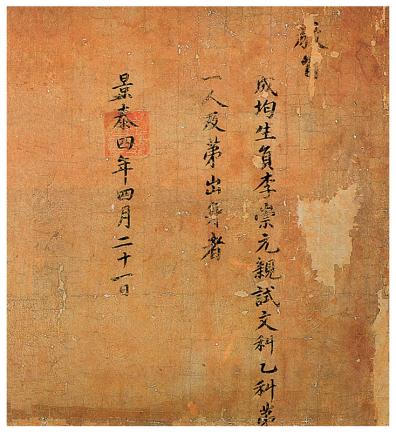 教旨
成均生員李崇元親試文科乙科第
一人及第出身者
景泰四年四月二十一日